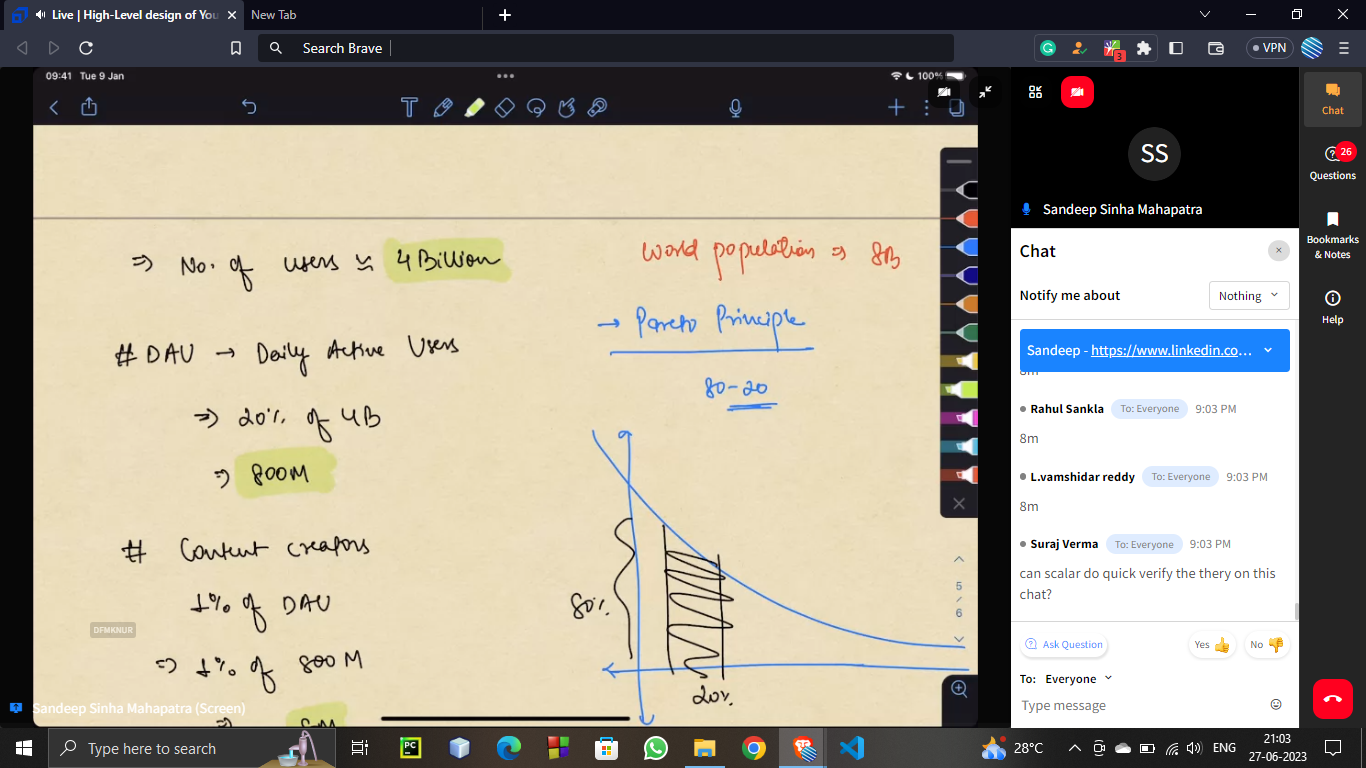 Live | High-Level design of You
New Tab
Search Brave
3
VPN
09:41 Tue 9 Jan
100%
⇒ No. of users ≈ 4 Billion
World population ⇒ 8B
→ Pareto Principle
80-20
# DAU → Daily Active Users
⇒ 20% of 4B
⇒ 800M
# Content creators
1% of DAU
⇒ 1% of 800M
⇒ 8M
80%
20%
5
/
6
DFMKNUR
Sandeep Sinha Mahapatra (Screen)
SS
Sandeep Sinha Mahapatra
Chat
Notify me about
Nothing
Sandeep - https://www.linkedin.co...
8m
Rahul Sankla To: Everyone 9:03 PM
8m
L.vamshidar reddy To: Everyone 9:03 PM
8m
Suraj Verma To: Everyone 9:03 PM
can scalar do quick verify the thery on this
chat?
Ask Question
Yes
No
To: Everyone
Type message
Chat
26
Questions
Bookmarks
& Notes
Help
Type here to search
PC
28°C
ENG
21:03
27-06-2023